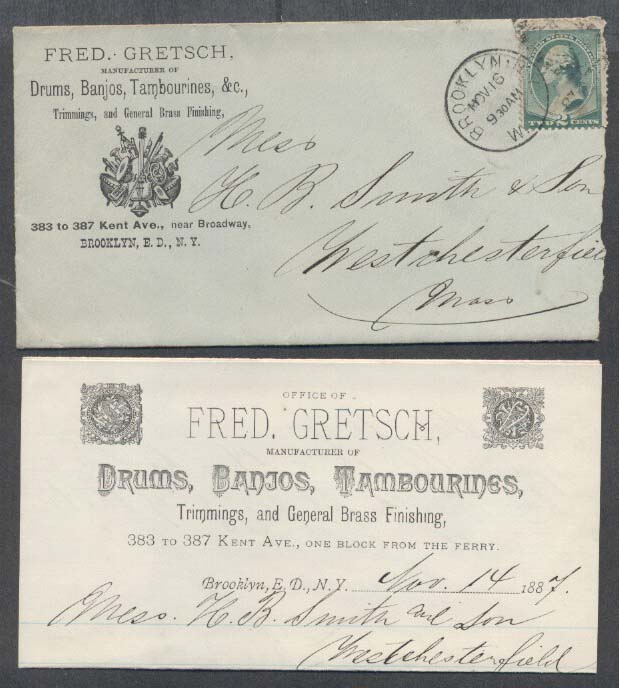 FRED. GRETSCH,
MANUFACTURER OF
Drums, Banjos, Tambourines, &c.,
Trimmings, and General Brass Finishing,
383 to 387 Kent Ave., near Broadway,
BROOKLYN, E. D., N. Y.
BROOKLYN
NOV 16
930AM
W
TWO 2 CENTS
Mess
H. B. Smith & Son
Westchesterfie
Mass
OFFICE OF
FRED. GRETSCH,
MANUFACTURER OF
DRUMS, BANJOS, TAMBOURINES,
Trimmings, and General Brass Finishing,
383 TO 387 KENT AVE., ONE BLOCK FROM THE FERRY.
Brooklyn, E. D., N. Y. Nov. 14 1887.
Mess. H. B. Smith and Son
Westchesterfield